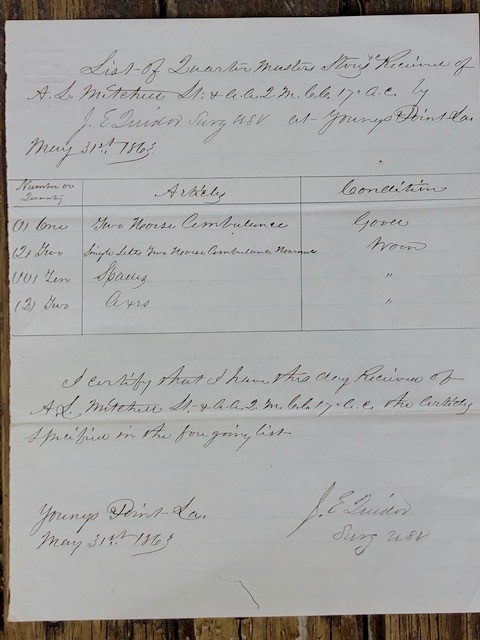 List of Quarter Masters Stores Received of
A. L. Mitchell Lt. & A.A.Q.M. C.C. 17" A.C. by
J. E. Quidor Surg USV at Youngs Point La.
May 31st. 1863
Number or Quantity Articles Condition
(1) One Two Horse Ambulance Good
(2) Two Single Setts Two Horse Ambulance Harness Worn
(10) Ten Spades "
(2) Two Axes "
I certify that I have this day Received of
A. L. Mitchell Lt. & A.A.Q.M. C.C. 17" A.C. the Articles
specified in the foregoing list
Youngs Point La. J. E. Quidor
May 31st. 1863 Surg USV